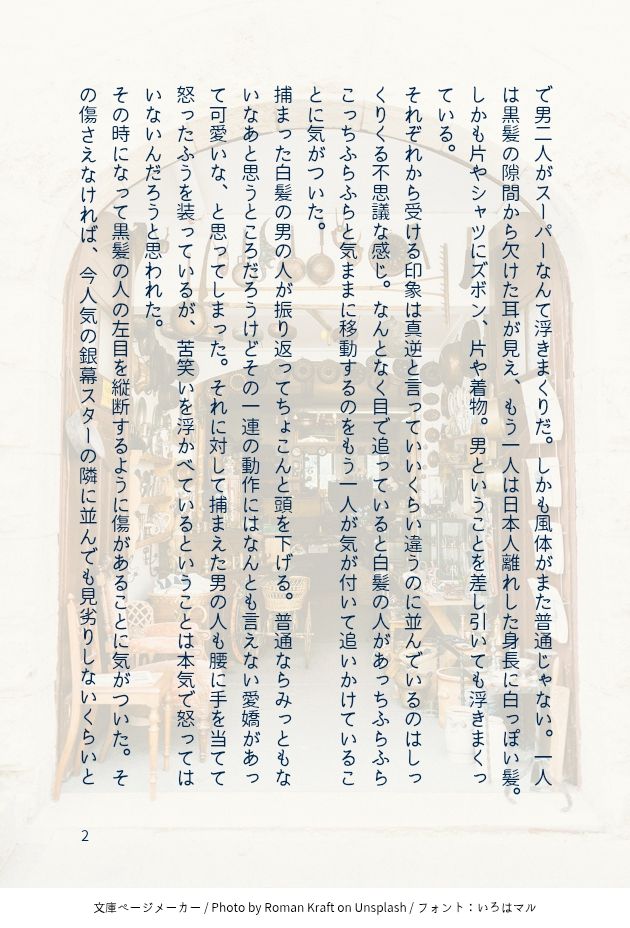 で男二人がスーパーなんて浮きまくりだ。しかも風体がまた普通じゃない。一人
は黒髪の隙間から欠けた耳が見え、もう一人は日本人離れした身長に白っぽい髪。
しかも片やシャツにズボン、片や着物。男ということを差し引いても浮きまくっ
ている。
それぞれから受ける印象は真逆と言っていいくらい違うのに並んでいるのはしっ
くりくる不思議な感じ。なんとなく目で追っていると白髪の人があっちふらふら
こっちふらふらと気ままに移動するのをもう一人が気が付いて追いかけているこ
とに気がついた。
捕まった白髪の男の人が振り返ってちょこんと頭を下げる。普通ならみっともな
いなあと思うところだろうけどその一連の動作にはなんとも言えない愛嬌があっ
て可愛いな、と思ってしまった。それに対して捕まえた男の人も腰に手を当てて
怒ったふうを装っているが、苦笑いを浮かべているということは本気で怒っては
いないんだろうと思われた。
その時になって黒髪の人の左目を縦断するように傷があることに気がついた。そ
の傷さえなければ、今人気の銀幕スターの隣に並んでも見劣りしないくらいと
2
文庫ページメーカー / Photo by Roman Kraft on Unsplash / フォント：いろはマル